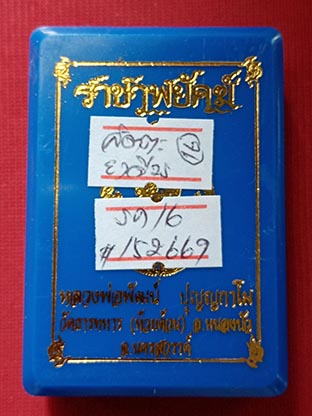 ราชาพยัคฆ์
๑๒
รค 16
#152669
หลวงพ่อพัฒน์ ปุญญกาโม
วัดธารทหาร (ห้วยด้วน) อ.หนองบัว
จ.นครสวรรค์